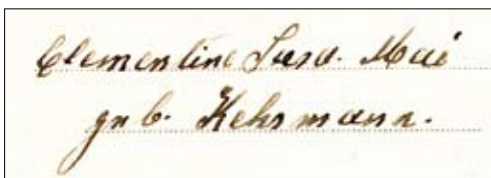 Clementine Sara Mai
geb. Kehrmann.